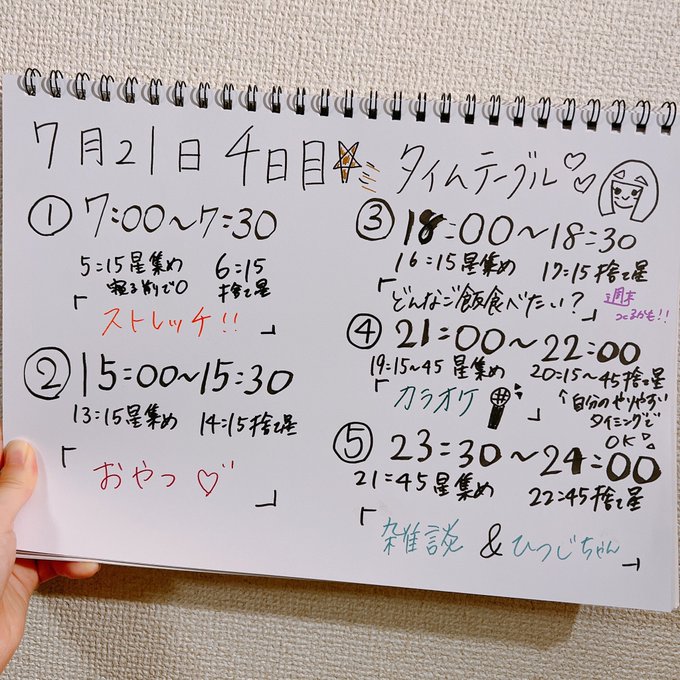 7月21日 4日目 タイムテーブル♡♡
① 7:00〜7:30
5:15星集め 6:15
寝る前でO 捨て星
「ストレッチ!!」
② 15:00〜15:30
13:15星集め 14:15捨て星
「おやつ♡」
③ 18:00〜18:30
16:15星集め 17:15捨て星
「どんなご飯食べたい?」
週末
つくるかも!!
④ 21:00〜22:00
19:15〜45星集め 20:15〜45捨て星
「カラオケ」
↑自分のやりやすい
タイミングで
OK
⑤ 23:30〜24:00
21:45星集め 22:45捨て星
「雑談 & ひつじちゃん」